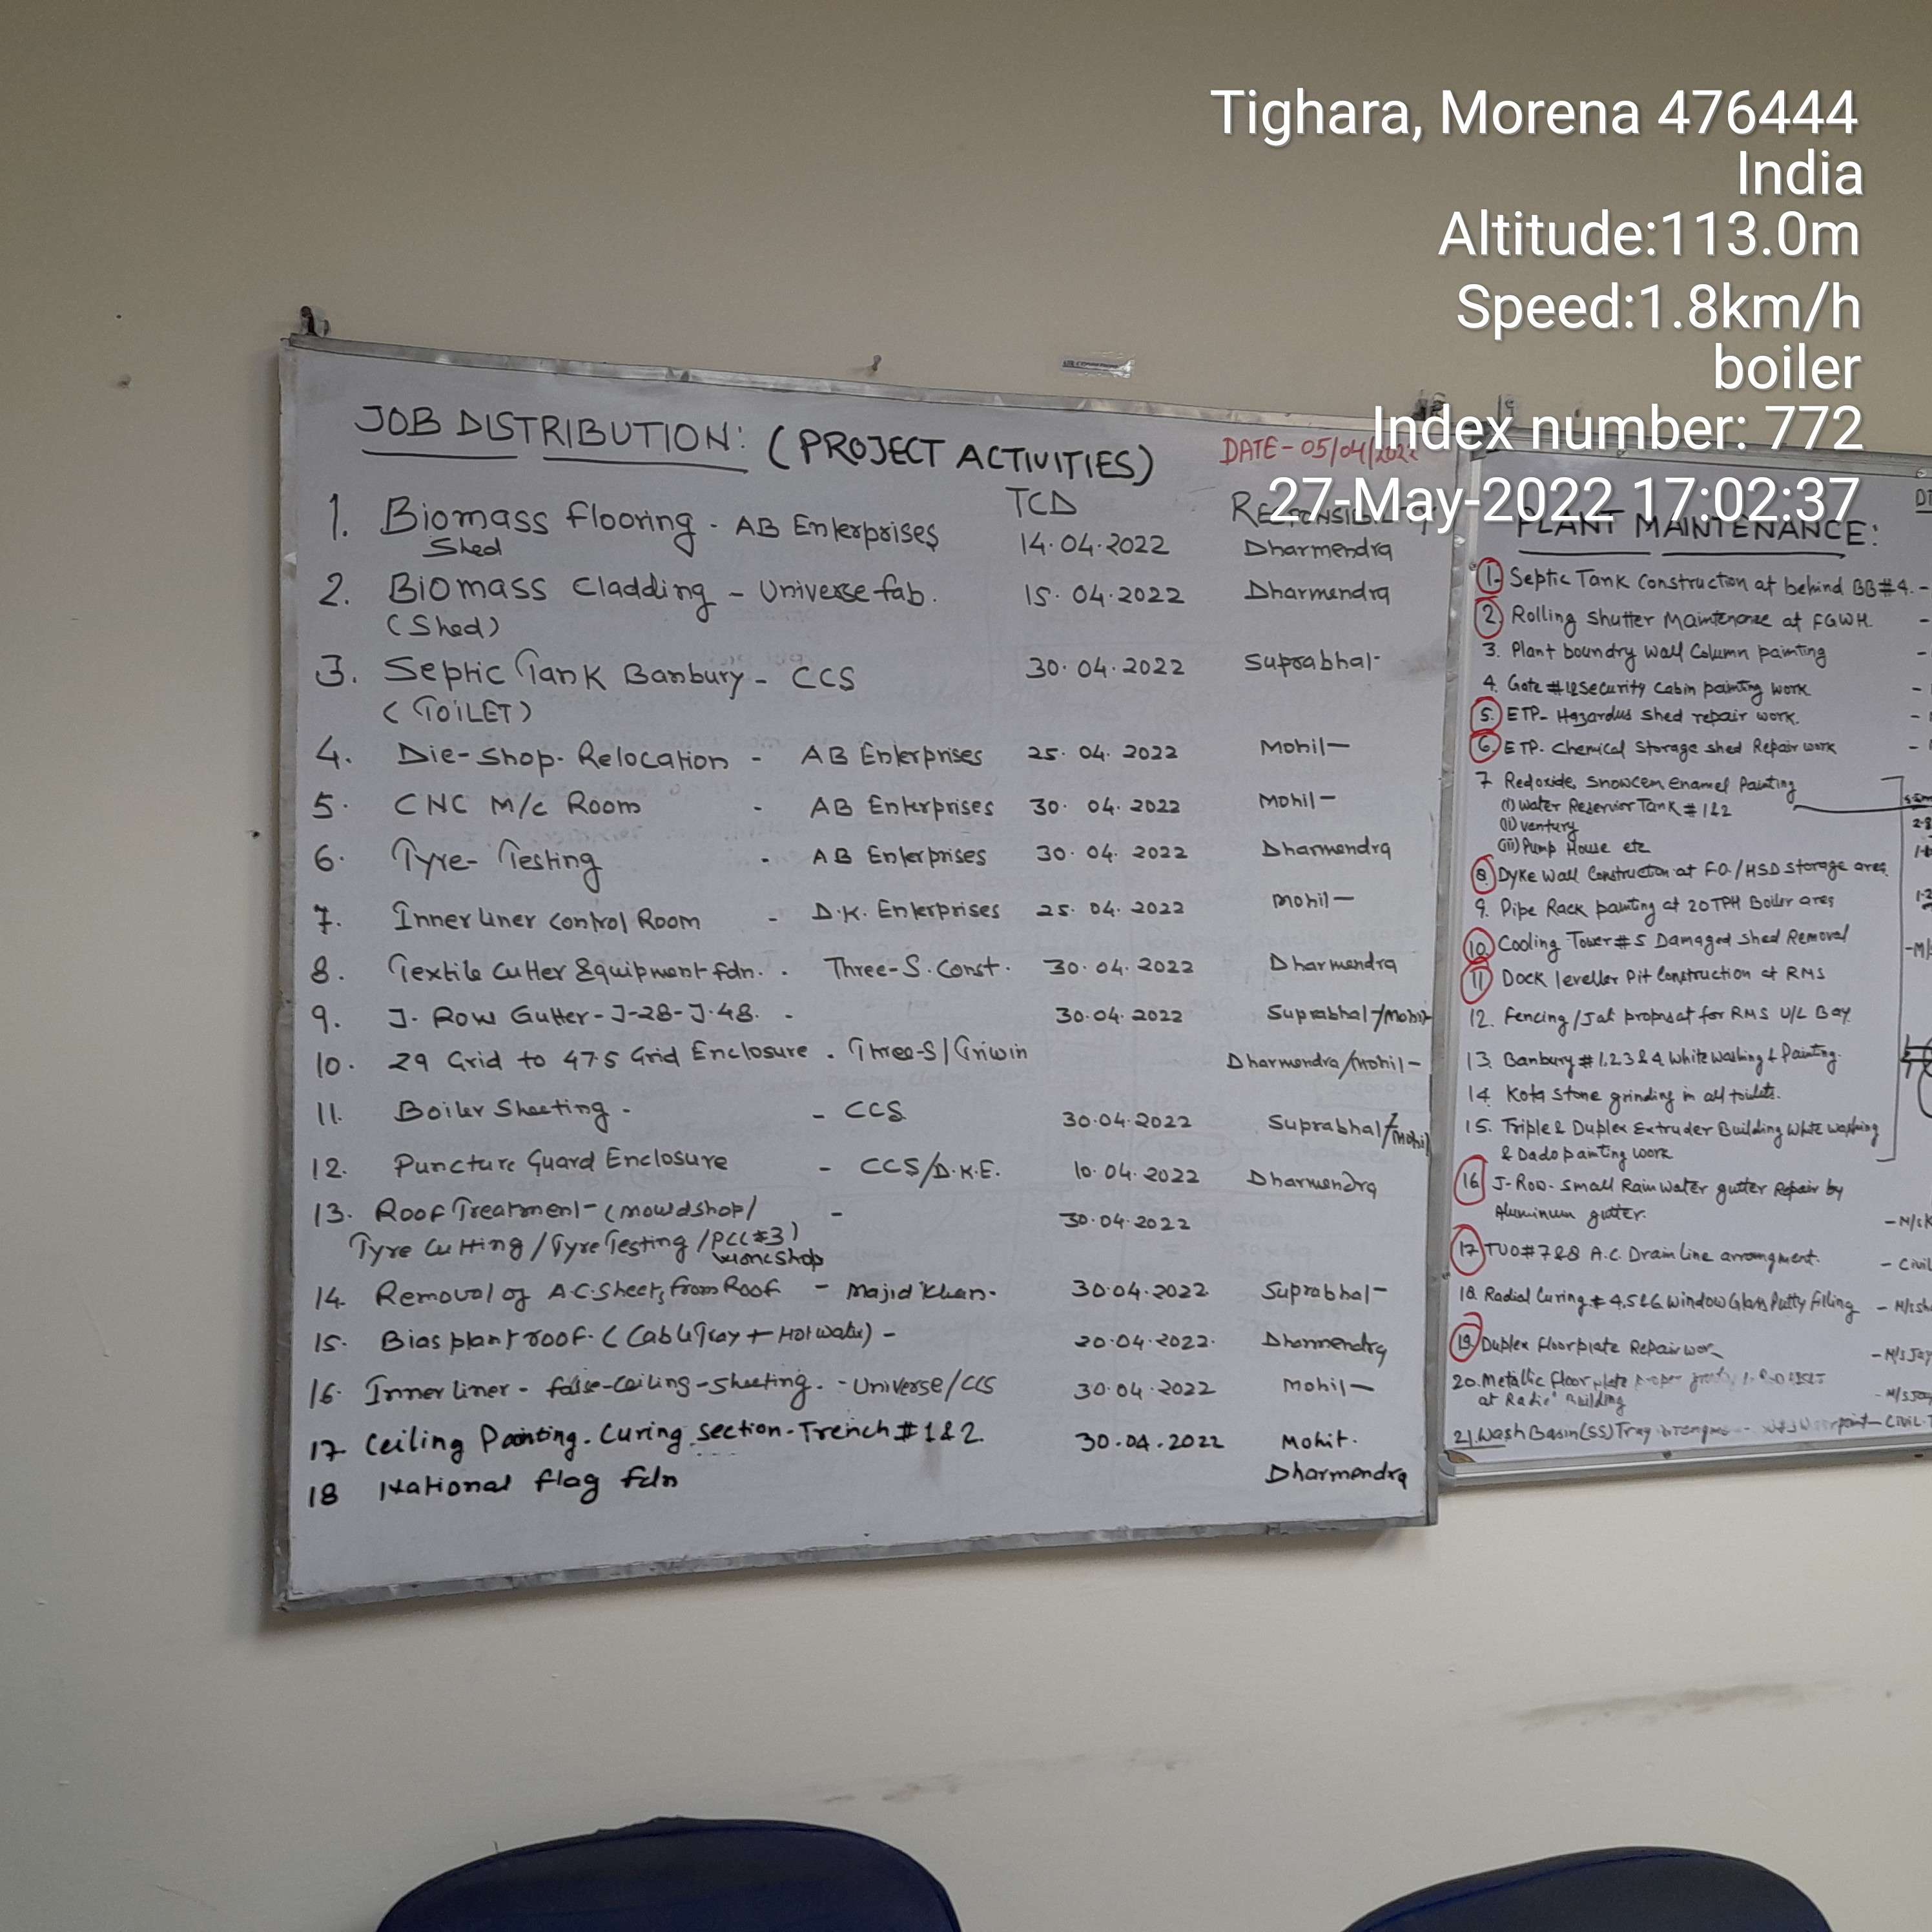 Tighara, Morena 476444
India
Altitude:113.0m
Speed:1.8km/h
boiler
Index number: 772
27-May-2022 17:02:37
JOB DISTRIBUTION: (PROJECT ACTIVITIES) DATE-05/04/2022
TCD RESPONSIBILITY
1. Biomass flooring - AB Enterprises 14.04.2022 Dharmendra
Shed
2. Biomass Cladding - Universe fab. 15.04.2022 Dharmendra
(Shed)
3. Septic Tank Banbury - CCS 30.04.2022 Suprabhat
(TOILET)
4. Die-Shop-Relocation - AB Enterprises 25.04.2022 Mohit
5. CNC M/c Room - AB Enterprises 30.04.2022 Mohit
6. Tyre-Testing - AB Enterprises 30.04.2022 Dharmendra
7. Inner liner control Room - D.K. Enterprises 25.04.2022 Mohit
8. Textile Cutter Equipment fdn. - Three-S.Const. 30.04.2022 Dharmendra
9. J-Row Gutter-J-28-J-48. - 30.04.2022 Suprabhat/Mohit
10. 29 Grid to 47.5 Grid Enclosure. Three-S/Griwin Dharmendra/Mohit
11. Boiler Sheeting - - CCS 30.04.2022 Suprabhat/Mohit
12. Puncture Guard Enclosure - CCS/D.K.E. 10.04.2022 Dharmendra
13. Roof Treatment-(mowdshop/ - 30.04.2022
Tyre Cutting/Tyre Testing/PCC#3)
workshop
14. Removal of A.C.Sheets from Roof - Majid Khan. 30.04.2022 Suprabhat
15. Bias plant roof. (Cable Tray + Hot water) - 20.04.2022. Dharmendra
16. Inner liner - false-Ceiling-Sheeting. - Universe/CCS 30.04.2022 Mohit
17 Ceiling Painting. Curing section-Trench #1&2. 30.04.2022 Mohit.
18 National flag fdn Dharmendra
PLANT MAINTENANCE:
1. Septic Tank Construction at behind BB#4. -
2. Rolling Shutter Maintenance at FGWH. -
3. Plant boundry Wall Column painting -
4. Gate #1&2 Security Cabin painting work -
5. ETP- Hazardus shed repair work. -
6. ETP. Chemical Storage shed Repair work -
7 Redoxide, Snowcem Enamel Painting
(i) Water Reservior Tank #1&2
(ii) ventury
(iii) Pump House etc
8. Dyke Wall Construction at F.O./HSD storage area
9. Pipe Rack painting at 20TPH Boiler area
10 Cooling Tower #5 Damaged Shed Removal -M/s
11 Dock leveller Pit Construction at RMS
12. Fencing/Jali proposal for RMS U/L Bay
13. Banbury #1,2,3&4 White washing & Painting.
14 Kota stone grinding in all toilets.
15. Triple & Duplex Extruder Building White washing
& Dado painting work
16 J-Row- Small Rain water gutter Repair by
Aluminum gutter. - M/s K
17 TUO #7&8 A.C. Drain Line arrangment. - Civil
18. Radial Curing #4,5&6 Window Glass Putty filling - M/s Sh
19 Duplex Floorplate Repair work - M/s Jay
20. Metallic floor plate proper
at Radial Building - M/s Jay
21. Wash Basin (SS) Tray - Civil-T